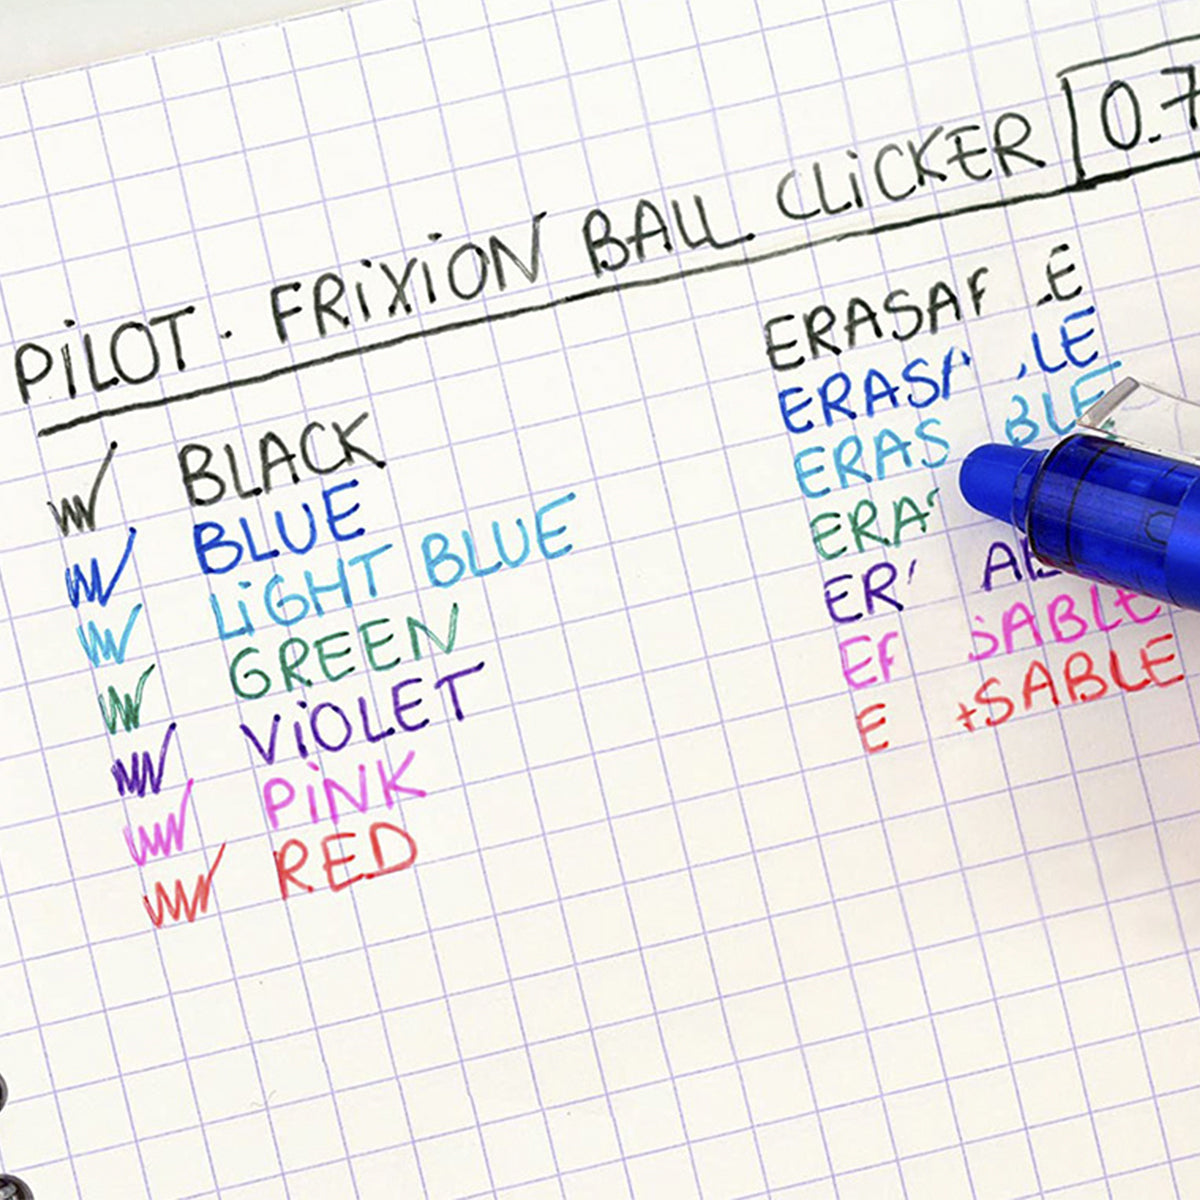 PiLOT · FRiXiON BALL CLiCKER 0.7
BLACK
BLUE
LiGHT BLUE
GREEN
ViOLET
PiNK
RED
ERASA E
ERAS LE
ERAS BLE
ERA
ER A
E SABLE
E SABLE